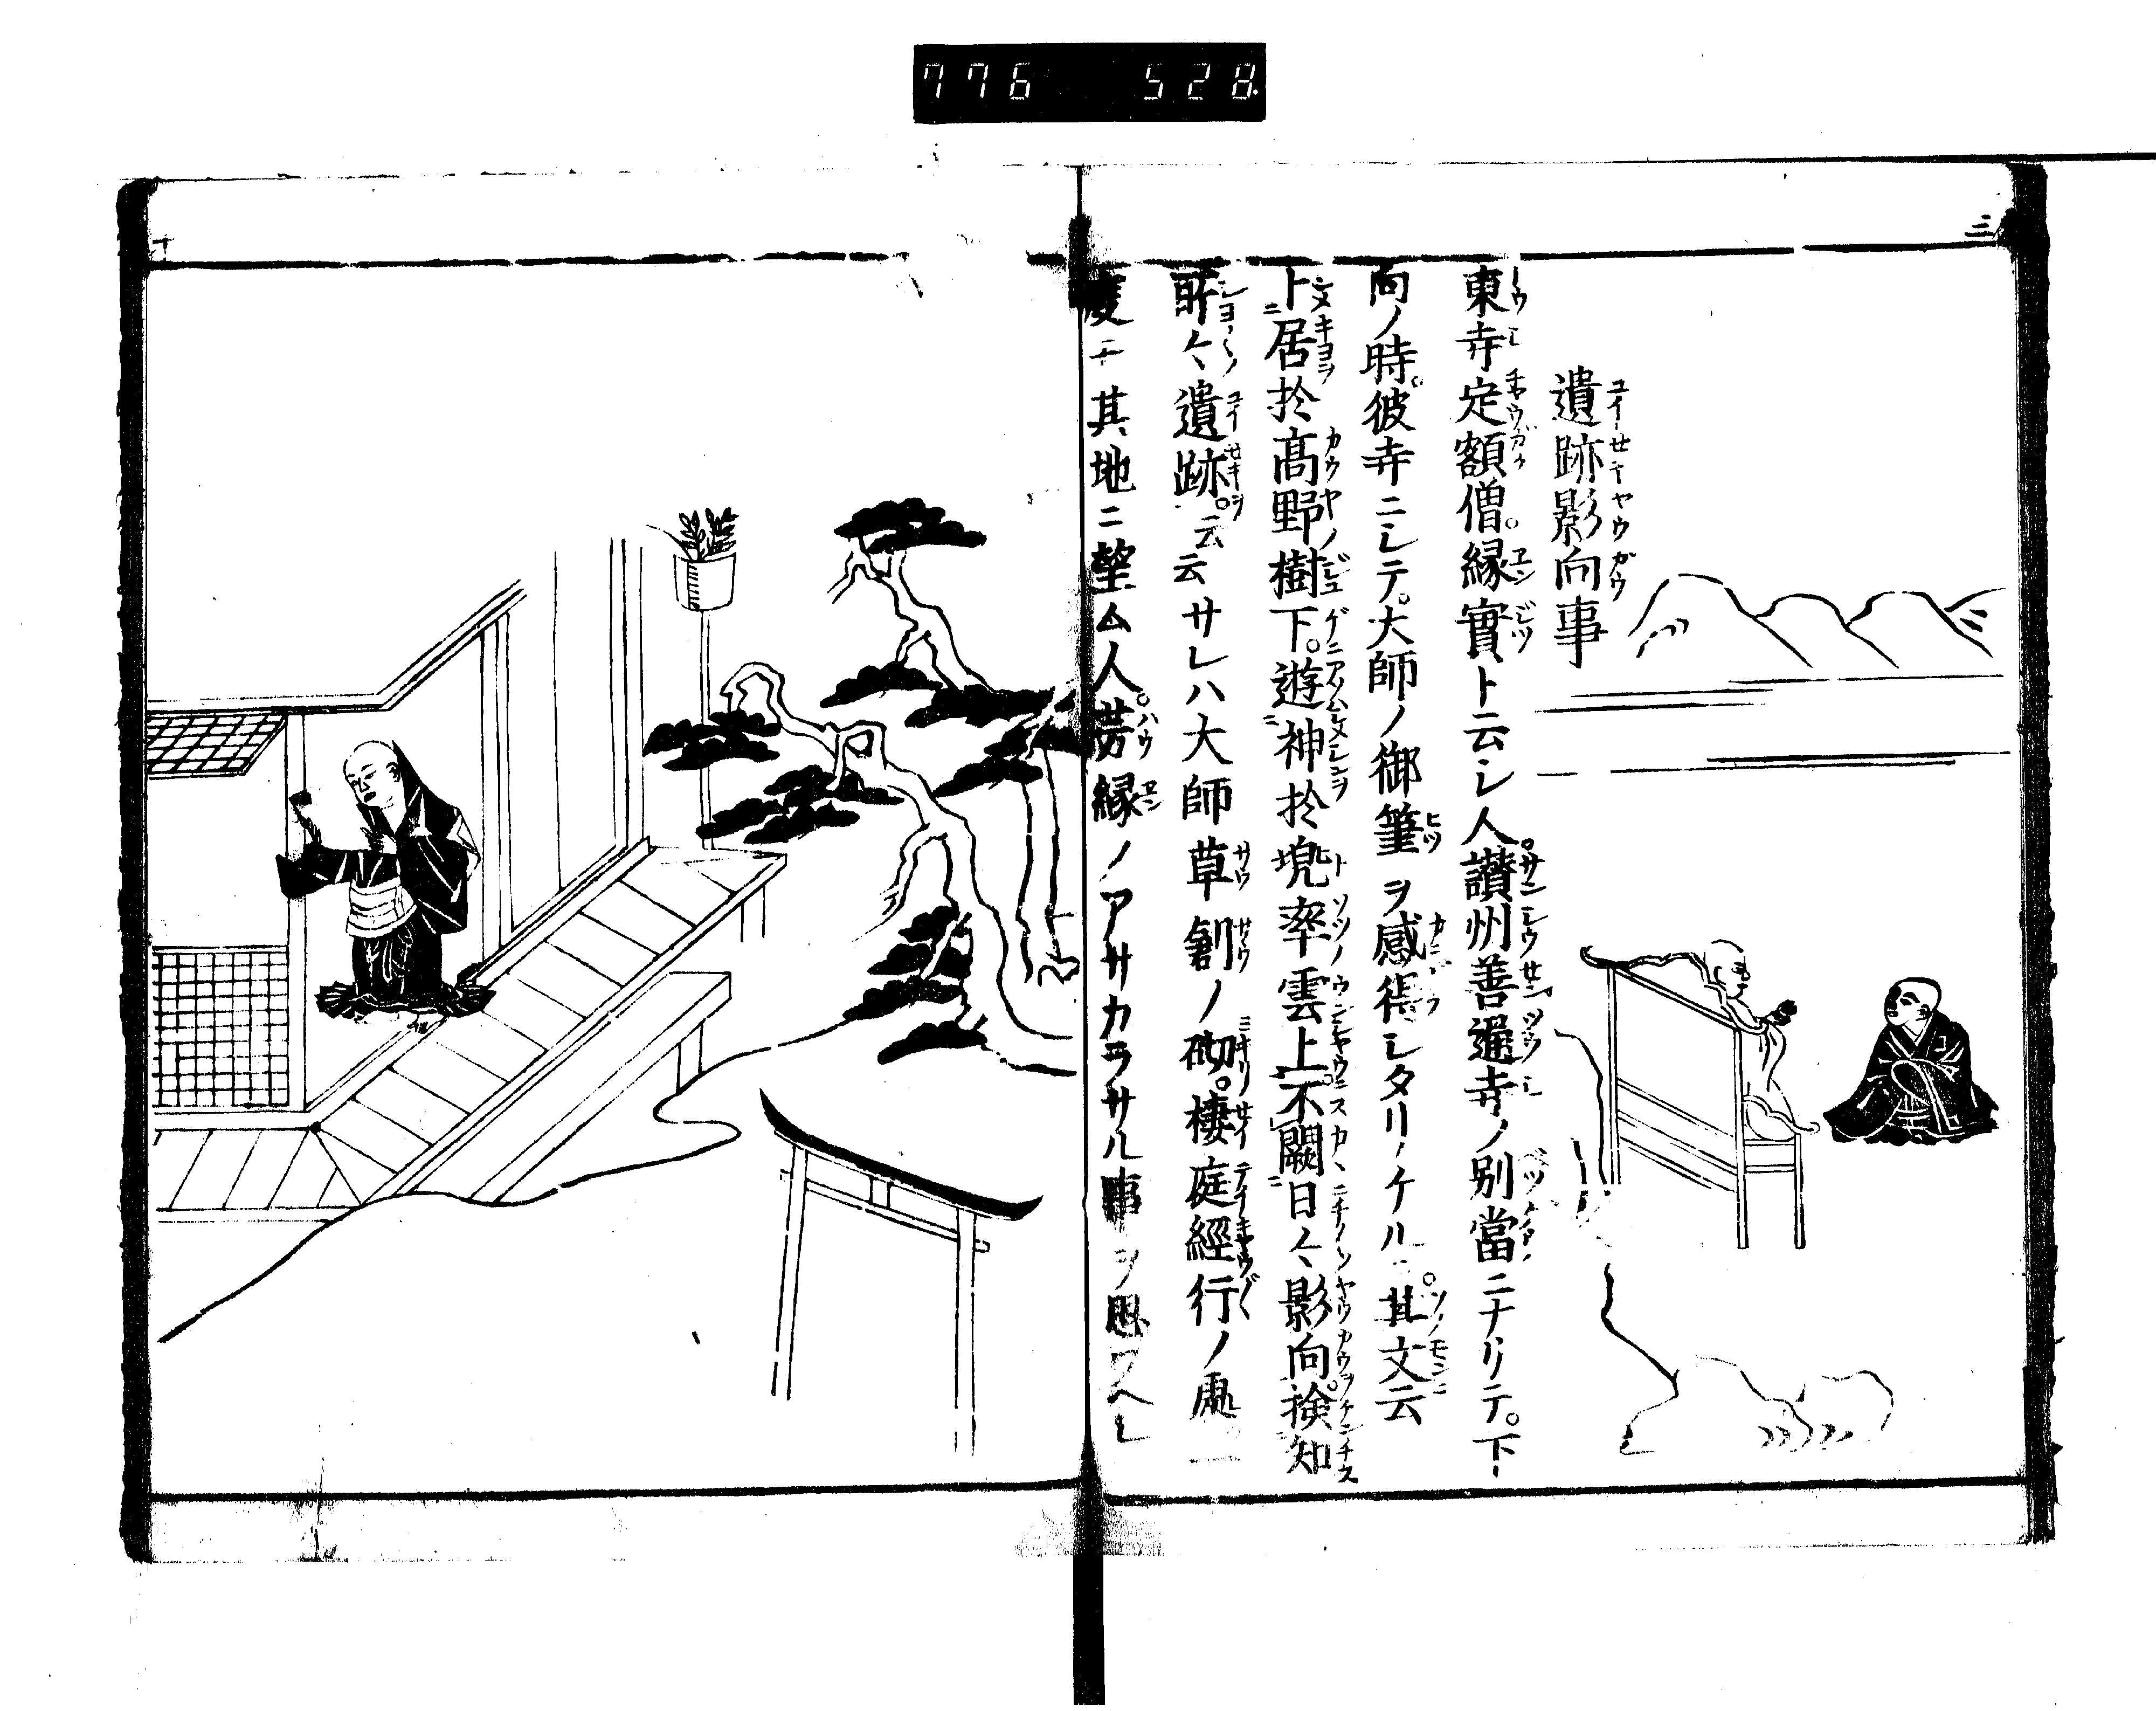 776 528
三
遺跡影向事
東寺定額僧。縁實ト云シ人。讃州善通寺ノ別當ニナリテ。下
向ノ時。彼寺ニシテ。大師ノ御筆ヲ感得シタリノケル。其文云
卜居於高野樹下。遊神於兜率雲上。不闕日〻影向。検知
所〻遺跡。云云サレハ大師草創ノ砌。棲庭經行ノ處。一
度モ其地ニ望ム人。芳縁ノアサカラサル事ヲ思フヘシ
十